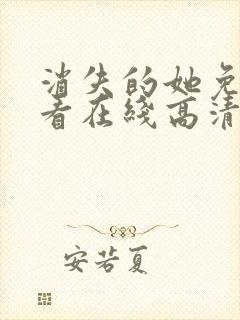 消失的她免
看在线高清
安若夏